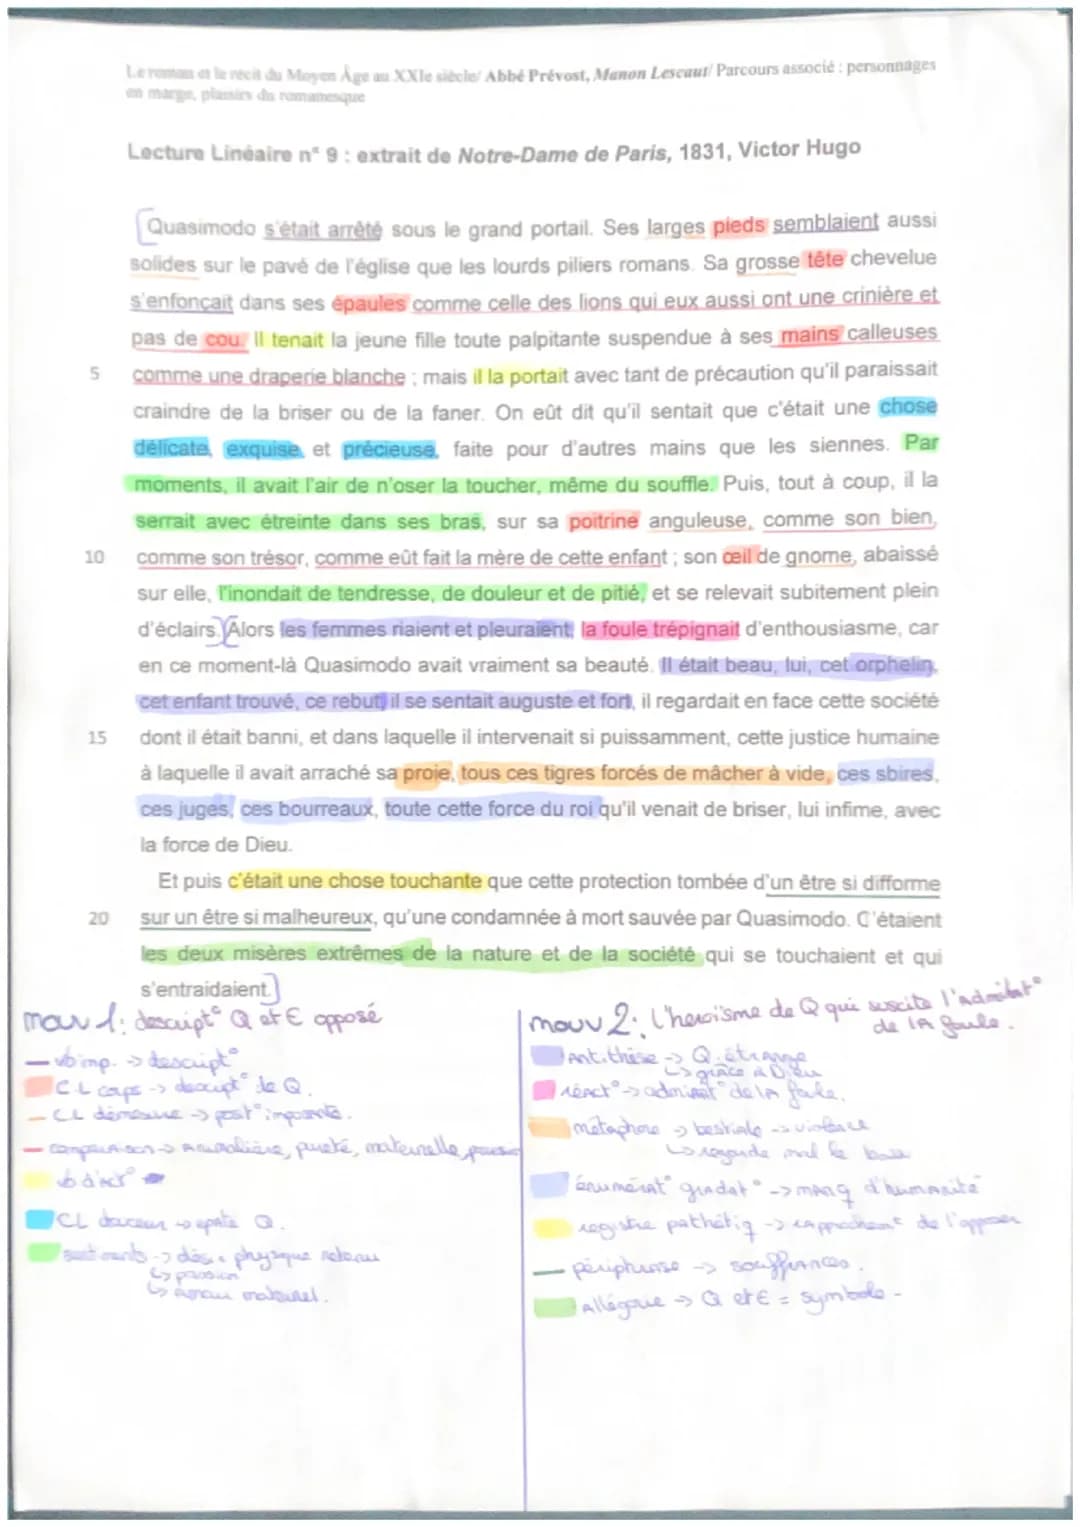 Le roman et le récit du Moyen Âge au XXIe siècle/ Abbé Prévost, Manon Lescaut/ Parcours associé : personnages
en marge, plaisirs du romanesque
Lecture Linéaire n° 9 : extrait de Notre-Dame de Paris, 1831, Victor Hugo
Quasimodo s'était arrêté sous le grand portail. Ses larges pieds semblaient aussi
solides sur le pavé de l'église que les lourds piliers romans. Sa grosse tête chevelue
s'enfonçait dans ses épaules comme celle des lions qui eux aussi ont une crinière et
pas de cou. Il tenait la jeune fille toute palpitante suspendue à ses mains calleuses
5 comme une draperie blanche ; mais il la portait avec tant de précaution qu'il paraissait
craindre de la briser ou de la faner. On eût dit qu'il sentait que c'était une chose
délicate, exquise et précieuse, faite pour d'autres mains que les siennes. Par
moments, il avait l'air de n'oser la toucher, même du souffle. Puis, tout à coup, il la
serrait avec étreinte dans ses bras, sur sa poitrine anguleuse, comme son bien,
10 comme son trésor, comme eût fait la mère de cette enfant ; son œil de gnome, abaissé
sur elle, l'inondait de tendresse, de douleur et de pitié, et se relevait subitement plein
d'éclairs. Alors les femmes riaient et pleuraient, la foule trépignait d'enthousiasme, car
en ce moment-là Quasimodo avait vraiment sa beauté. Il était beau, lui, cet orphelin,
cet enfant trouvé, ce rebut, il se sentait auguste et fort, il regardait en face cette société
15 dont il était banni, et dans laquelle il intervenait si puissamment, cette justice humaine
à laquelle il avait arraché sa proie, tous ces tigres forcés de mâcher à vide, ces sbires,
ces juges, ces bourreaux, toute cette force du roi qu'il venait de briser, lui infime, avec
la force de Dieu.
Et puis c'était une chose touchante que cette protection tombée d'un être si difforme
20 sur un être si malheureux, qu'une condamnée à mort sauvée par Quasimodo. C'étaient
les deux misères extrêmes de la nature et de la société qui se touchaient et qui
s'entraidaient.
mouv 1: descript° Q et E opposé
vb imp. -> descript°
CL corps -> descript° de Q.
CL démesure -> post° imposante.
comparaison -> Animalière, pureté, maternelle,
vb d'act°
CL douceur -> Q.
sentiments -> physique retenu
-> passion
-> amour maternel.
mouv 2: l'heroïsme de Q qui suscite l'admirat°
de la foule.
Antithèse -> Q. étrange
-> grâce à Dieu
réact° -> admirat° de la foule.
métaphore -> bestiale -> violence
-> regarde mal le
énumérat° gradat° -> manq d'humanité
registre pathétiq -> rapprochemt de
périphrase -> souffrances.
Allégorie -> Q et E = symbole.